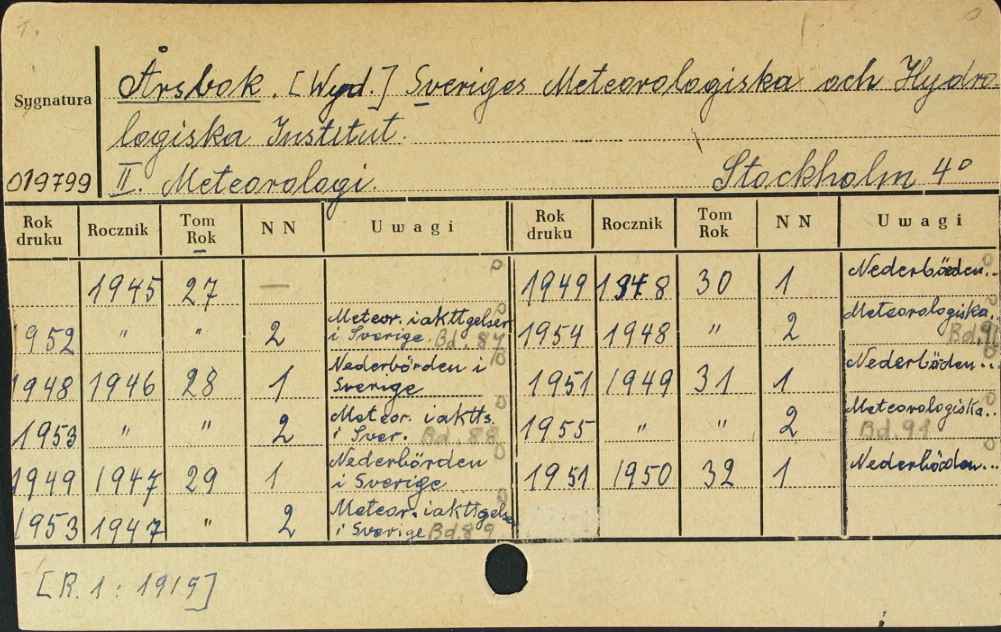 1.
Årsbok. [Wyd.] Sveriges Meteorologiska och Hydro-
Sygnatura
logiska Institut.
019799
II. Meteorologi. Stockholm 4°
Rok druku Rocznik Tom Rok N N Uwagi Rok druku Rocznik Tom Rok N N Uwagi
1945 27 — 1949 1948 30 1 Nederbörden...
1952 " " 2 Meteor. iakttgelser i Sverige Bd. 87 1954 1948 " 2 Meteorologiska..
1948 1946 28 1 Nederbörden i Sverige 1951 1949 31 1 Nederböden...
1953 " " 2 Meteor. iaktts. i Sver. Bd. 88 1955 " " 2 Meteorologiska.. Bd. 91
1949 1947 29 1 Nederbörden i Sverige 1951 1950 32 1 Nederbörden...
1953 1947 " 2 Meteor. iakttgelser i Sverige Bd 89
[R. 1 : 1919]